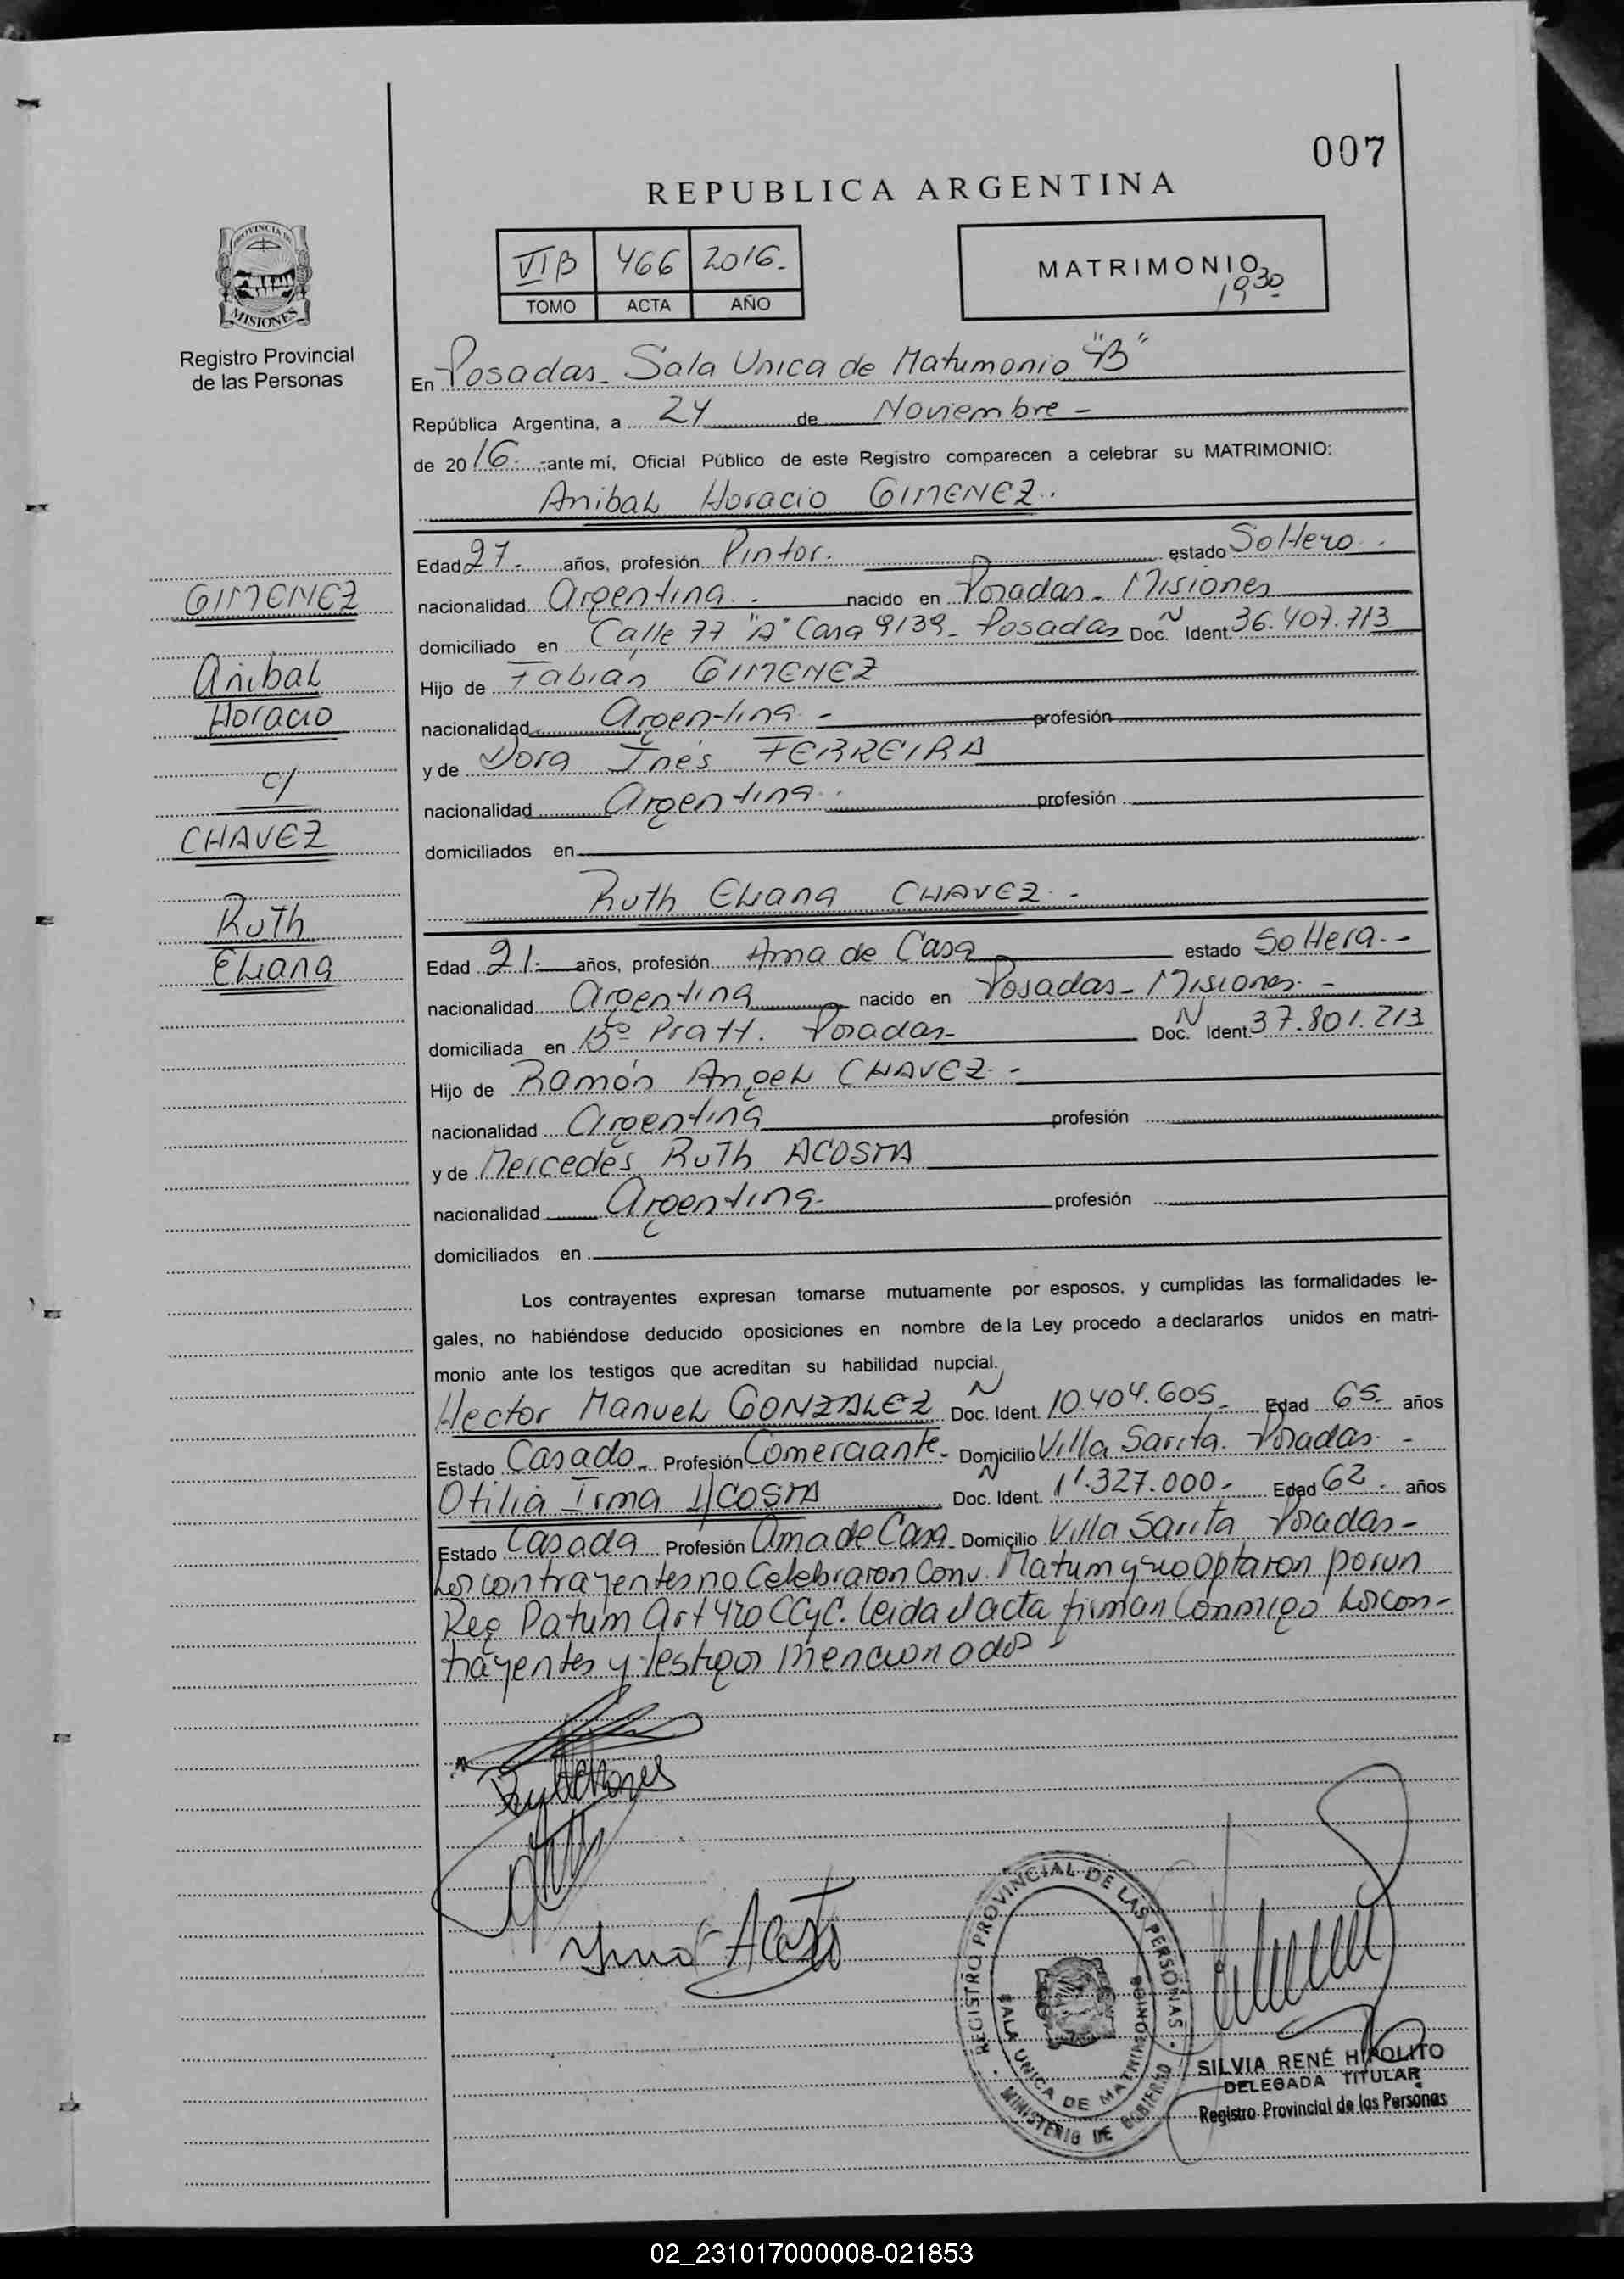 007
REPUBLICA ARGENTINA
PROVINCIA DE
MISIONES
Registro Provincial
de las Personas
VI B 466 2016.-
TOMO ACTA AÑO
MATRIMONIO
19 30
En Posadas - Sala Unica de Matrimonio "B"
República Argentina, a 24 de Noviembre -
de 20 16.- ;ante mí, Oficial Público de este Registro comparecen a celebrar su MATRIMONIO:
Anibal Horacio GIMENEZ.
GIMENEZ
Anibal
Horacio
c/
CHAVEZ
Ruth
Eliana
Edad 27.- años, profesión Pintor. estado Soltero.
nacionalidad Argentina.- nacido en Posadas - Misiones
domiciliado en Calle 77 "A" Casa 9139 - Posadas Doc. N Ident. 36.407.713
Hijo de Fabián GIMENEZ
nacionalidad Argentina - profesión
y de Dora Inés FERREIRA
nacionalidad Argentina. profesión
domiciliados en
Ruth Eliana CHAVEZ.-
Edad 21.- años, profesión Ama de Casa estado Soltera.-
nacionalidad Argentina nacido en Posadas - Misiones.-
domiciliada en Bº Pratt. Posadas- Doc. N Ident. 37.801.213
Hijo de Ramón Angel CHAVEZ.-
nacionalidad Argentina profesión
y de Mercedes Ruth ACOSTA
nacionalidad Argentina. profesión
domiciliados en
Los contrayentes expresan tomarse mutuamente por esposos, y cumplidas las formalidades le-
gales, no habiéndose deducido oposiciones en nombre de la Ley procedo a declararlos unidos en matri-
monio ante los testigos que acreditan su habilidad nupcial.
Hector Manuel GONZALEZ Doc. N Ident. 10.404.605- Edad 65.- años
Estado Casado - Profesión Comerciante - Domicilio Villa Sarita. Posadas.-
Otilia Irma ACOSTA Doc. N Ident. 11.327.000.- Edad 62.- años
Estado Casada Profesión Ama de Casa - Domicilio Villa Sarita Posadas-
Los contrayentes no Celebraron Conv. Matrim y no optaron por un
Reg Patrim Art 420 CCyC. leida el acta firman conmigo Los con-
trayentes y testigos mencionados
Irma Acosta
REGISTRO PROVINCIAL DE LAS PERSONAS
SALA UNICA DE MATRIMONIOS
MINISTERIO DE GOBIERNO
SILVIA RENÉ HIPOLITO
DELEGADA TITULAR
Registro Provincial de las Personas
02_231017000008-021853